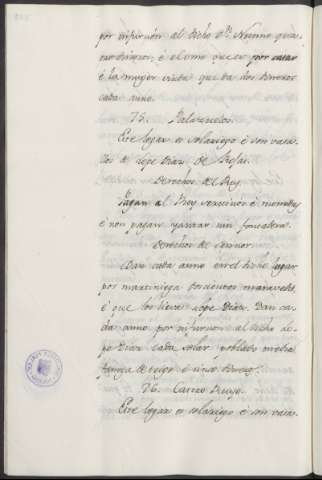 por infurcion al dicho D.º Nunno qua-
tro dineros, é el ome vncer por casar
é la muger viuda que da dos dineros
cada anno.
75. Palazuelos.
Este logar es solariego é son vasa-
llos de Lope Diaz de Rojas.
Derechos del Rey.
Pagan al Rey servicios é monedas
é non pagan yantar nin fonsadera.
Derechos del Sennor.
Dan cada anno en el dicho lugar
por martiniega trecientos maravedis
é que los lieva Lope Diaz. Dan ca-
da anno por infurcion al dicho Lo-
pe Diaz cada solar poblado media
fanega de trigo é cinco dineros.
76. Castro
Este logar es solariego é son vasa-